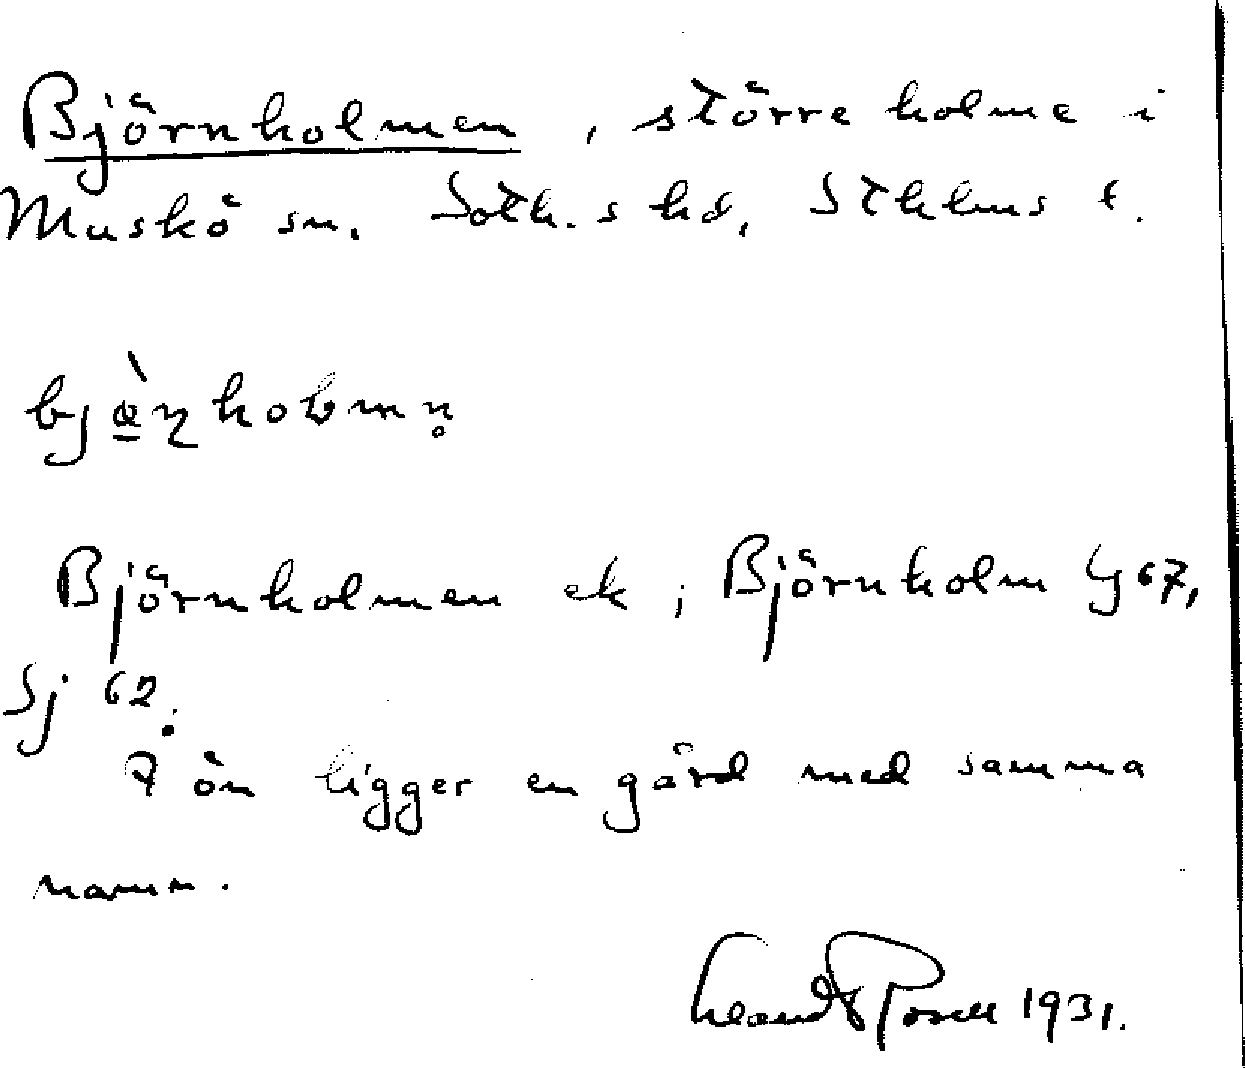 Björnholmen, större holme i
Muskö sn. Soth.s hd, Sthlms l.
Björnholmen ek; Björnholm Gj 67,
Sj 62.
I ön ligger en gård med samma
namn.
1931.